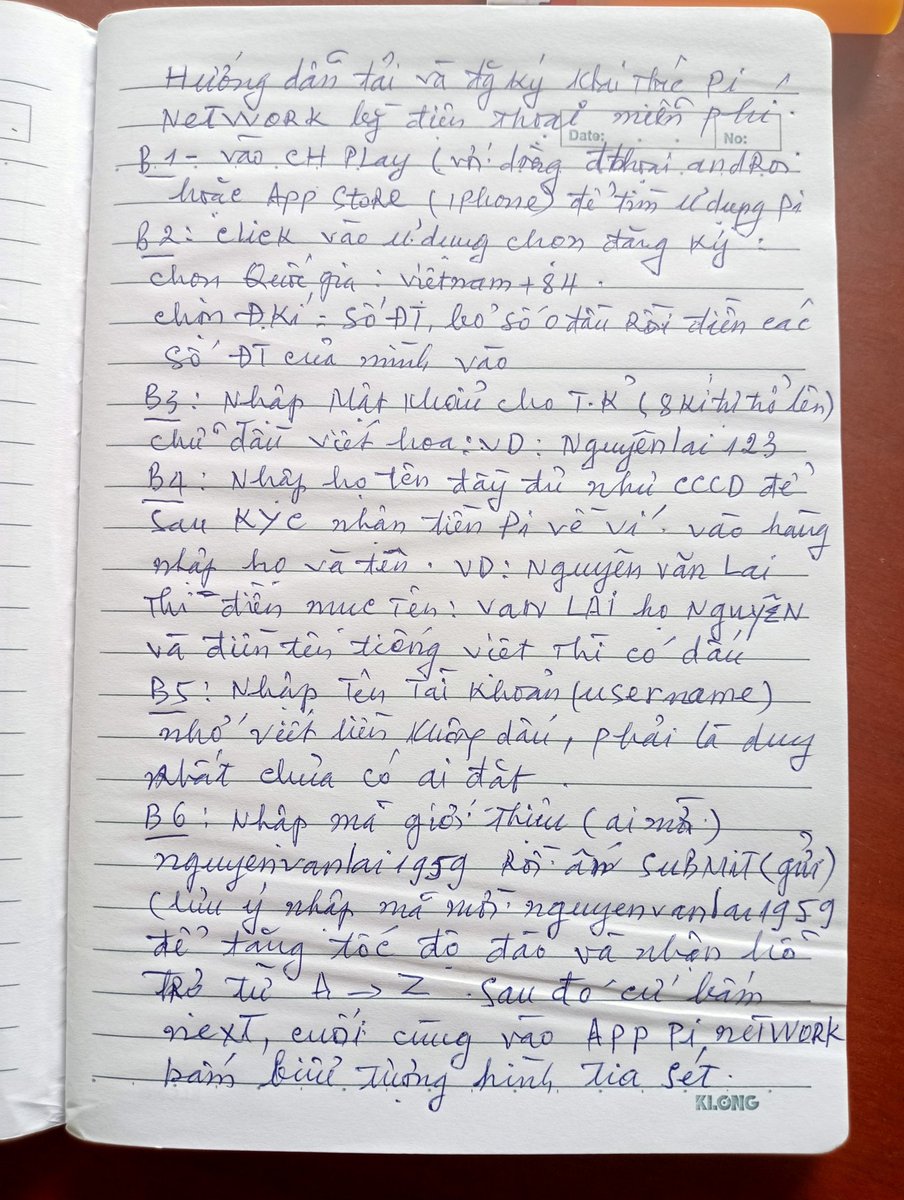 Hướng dẫn tải và đg ký khai thác Pi
NETWORK bg điện thoại miễn phí
Date: No:
B1- vào CH Play (với dòng đthoai andRoi
hoặc App Store (iphone) để tìm ư dụng Pi
B2: click vào ư dụng chọn đăng ký :
chọn Quốc gia : Việtnam +84.
chọn Đ.Kí = Số ĐT, bỏ số 0 đầu Rồi điền các
Số ĐT của mình vào
B3: Nhập Mật Khẩu cho T.K (8 kí tự trở lên)
chữ đầu viết hoa: VD: Nguyênlai 123
B4: Nhập họ tên đầy đủ như CCCD để
Sau KYC nhận tiền Pi về ví. vào hàng
nhập họ và tên. VD: Nguyễn văn Lai
Thì điền mục Tên: VAN LAI họ NGUYỄN
và điền tên tiếng việt thì có dấu
B5: Nhập Tên Tài khoản (username)
nhớ viết liền không dấu, phải là duy
nhất chưa có ai đặt.
B6: Nhập mã giới thiệu (ai mời)
nguyenvanlai1959 Rồi ấm SUBMIT (gửi)
(Lưu ý nhập mã mời nguyenvanlai1959
để tăng tốc độ đào và nhận hỗ
TRỢ từ A → Z. Sau đó cứ bấm
next, cuối cùng vào APP Pi NETWORK
bấm biểu tượng hình tia sét.
KLONG